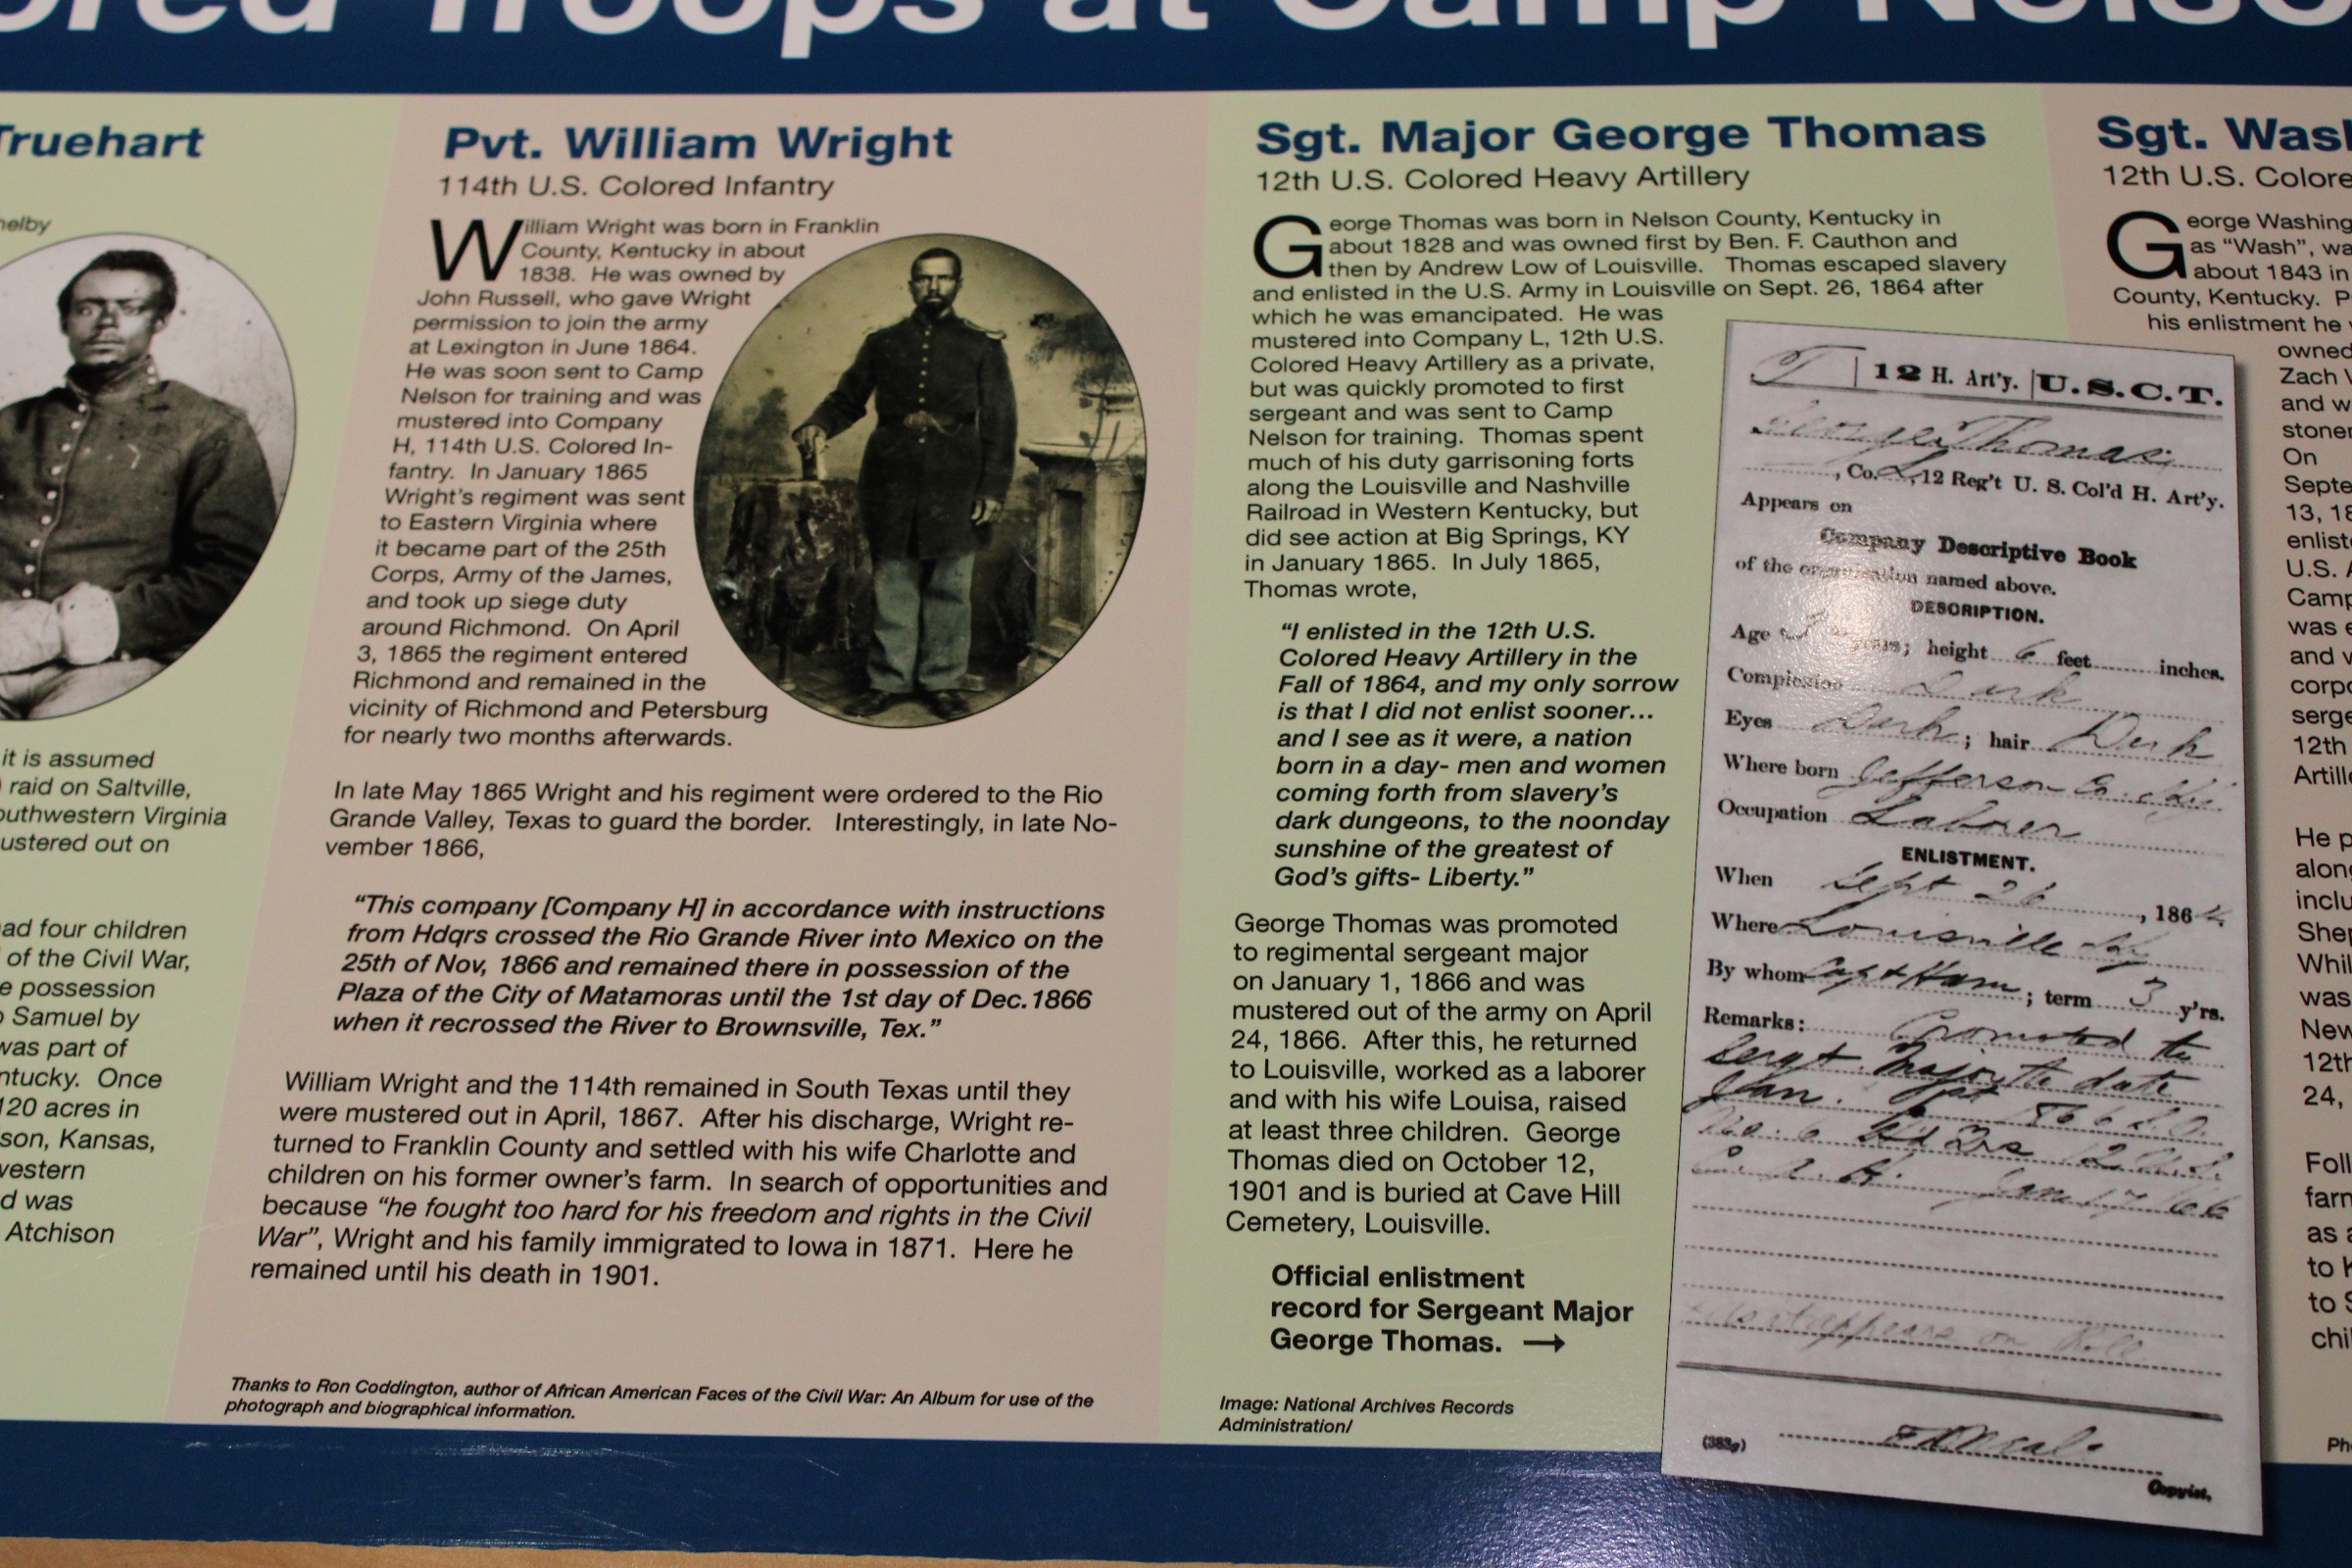 ored Troops at Camp Nelso
Truehart
helby
it is assumed
) raid on Saltville,
outhwestern Virginia
ustered out on
ad four children
of the Civil War,
e possession
o Samuel by
was part of
ntucky. Once
120 acres in
son, Kansas,
western
d was
Atchison
Pvt. William Wright
114th U.S. Colored Infantry
William Wright was born in Franklin
County, Kentucky in about
1838. He was owned by
John Russell, who gave Wright
permission to join the army
at Lexington in June 1864.
He was soon sent to Camp
Nelson for training and was
mustered into Company
H, 114th U.S. Colored In-
fantry. In January 1865
Wright's regiment was sent
to Eastern Virginia where
it became part of the 25th
Corps, Army of the James,
and took up siege duty
around Richmond. On April
3, 1865 the regiment entered
Richmond and remained in the
vicinity of Richmond and Petersburg
for nearly two months afterwards.
In late May 1865 Wright and his regiment were ordered to the Rio
Grande Valley, Texas to guard the border. Interestingly, in late No-
vember 1866,
“This company [Company H] in accordance with instructions
from Hdqrs crossed the Rio Grande River into Mexico on the
25th of Nov, 1866 and remained there in possession of the
Plaza of the City of Matamoras until the 1st day of Dec.1866
when it recrossed the River to Brownsville, Tex.”
William Wright and the 114th remained in South Texas until they
were mustered out in April, 1867. After his discharge, Wright re-
turned to Franklin County and settled with his wife Charlotte and
children on his former owner's farm. In search of opportunities and
because “he fought too hard for his freedom and rights in the Civil
War”, Wright and his family immigrated to Iowa in 1871. Here he
remained until his death in 1901.
Thanks to Ron Coddington, author of African American Faces of the Civil War: An Album for use of the
photograph and biographical information.
Sgt. Major George Thomas
12th U.S. Colored Heavy Artillery
George Thomas was born in Nelson County, Kentucky in
about 1828 and was owned first by Ben. F. Cauthon and
then by Andrew Low of Louisville. Thomas escaped slavery
and enlisted in the U.S. Army in Louisville on Sept. 26, 1864 after
which he was emancipated. He was
mustered into Company L, 12th U.S.
Colored Heavy Artillery as a private,
but was quickly promoted to first
sergeant and was sent to Camp
Nelson for training. Thomas spent
much of his duty garrisoning forts
along the Louisville and Nashville
Railroad in Western Kentucky, but
did see action at Big Springs, KY
in January 1865. In July 1865,
Thomas wrote,
“I enlisted in the 12th U.S.
Colored Heavy Artillery in the
Fall of 1864, and my only sorrow
is that I did not enlist sooner...
and I see as it were, a nation
born in a day- men and women
coming forth from slavery's
dark dungeons, to the noonday
sunshine of the greatest of
God's gifts- Liberty.”
George Thomas was promoted
to regimental sergeant major
on January 1, 1866 and was
mustered out of the army on April
24, 1866. After this, he returned
to Louisville, worked as a laborer
and with his wife Louisa, raised
at least three children. George
Thomas died on October 12,
1901 and is buried at Cave Hill
Cemetery, Louisville.
Official enlistment
record for Sergeant Major
George Thomas. →
Image: National Archives Records
Administration/
T 12 H. Art'y. U.S.C.T.
George Thomas
, Co. L, 12 Reg't U. S. Col'd H. Art'y.
Appears on
Company Descriptive Book
of the organization named above.
DESCRIPTION.
Age years; height 6 feet inches.
Complexion Dark
Eyes Dark; hair Dark
Where born Jefferson Co. Ky.
Occupation Laborer
ENLISTMENT.
When Sept 26, 1864
Where Louisville Ky
By whom Capt Ham; term 3 y'rs.
Remarks: Promoted to
Sergt. Major to date
Jan. 1st 1866 S.O.
No. 6 Hd Qrs 12 U.S.
C. A. H. Jan 17 66
as it appears on Roll
(383g)
Copyist.
Sgt. Wash
12th U.S. Colore
George Washing
as “Wash”, wa
about 1843 in
County, Kentucky. P
his enlistment he
owned
Zach
and w
stoner
On
Septe
13, 18
enliste
U.S. A
Camp
was e
and v
corpo
serge
12th
Artille
He p
along
inclu
Shep
While
was
New
12th
24,
Foll
farm
as a
to K
to S
chil
Pho